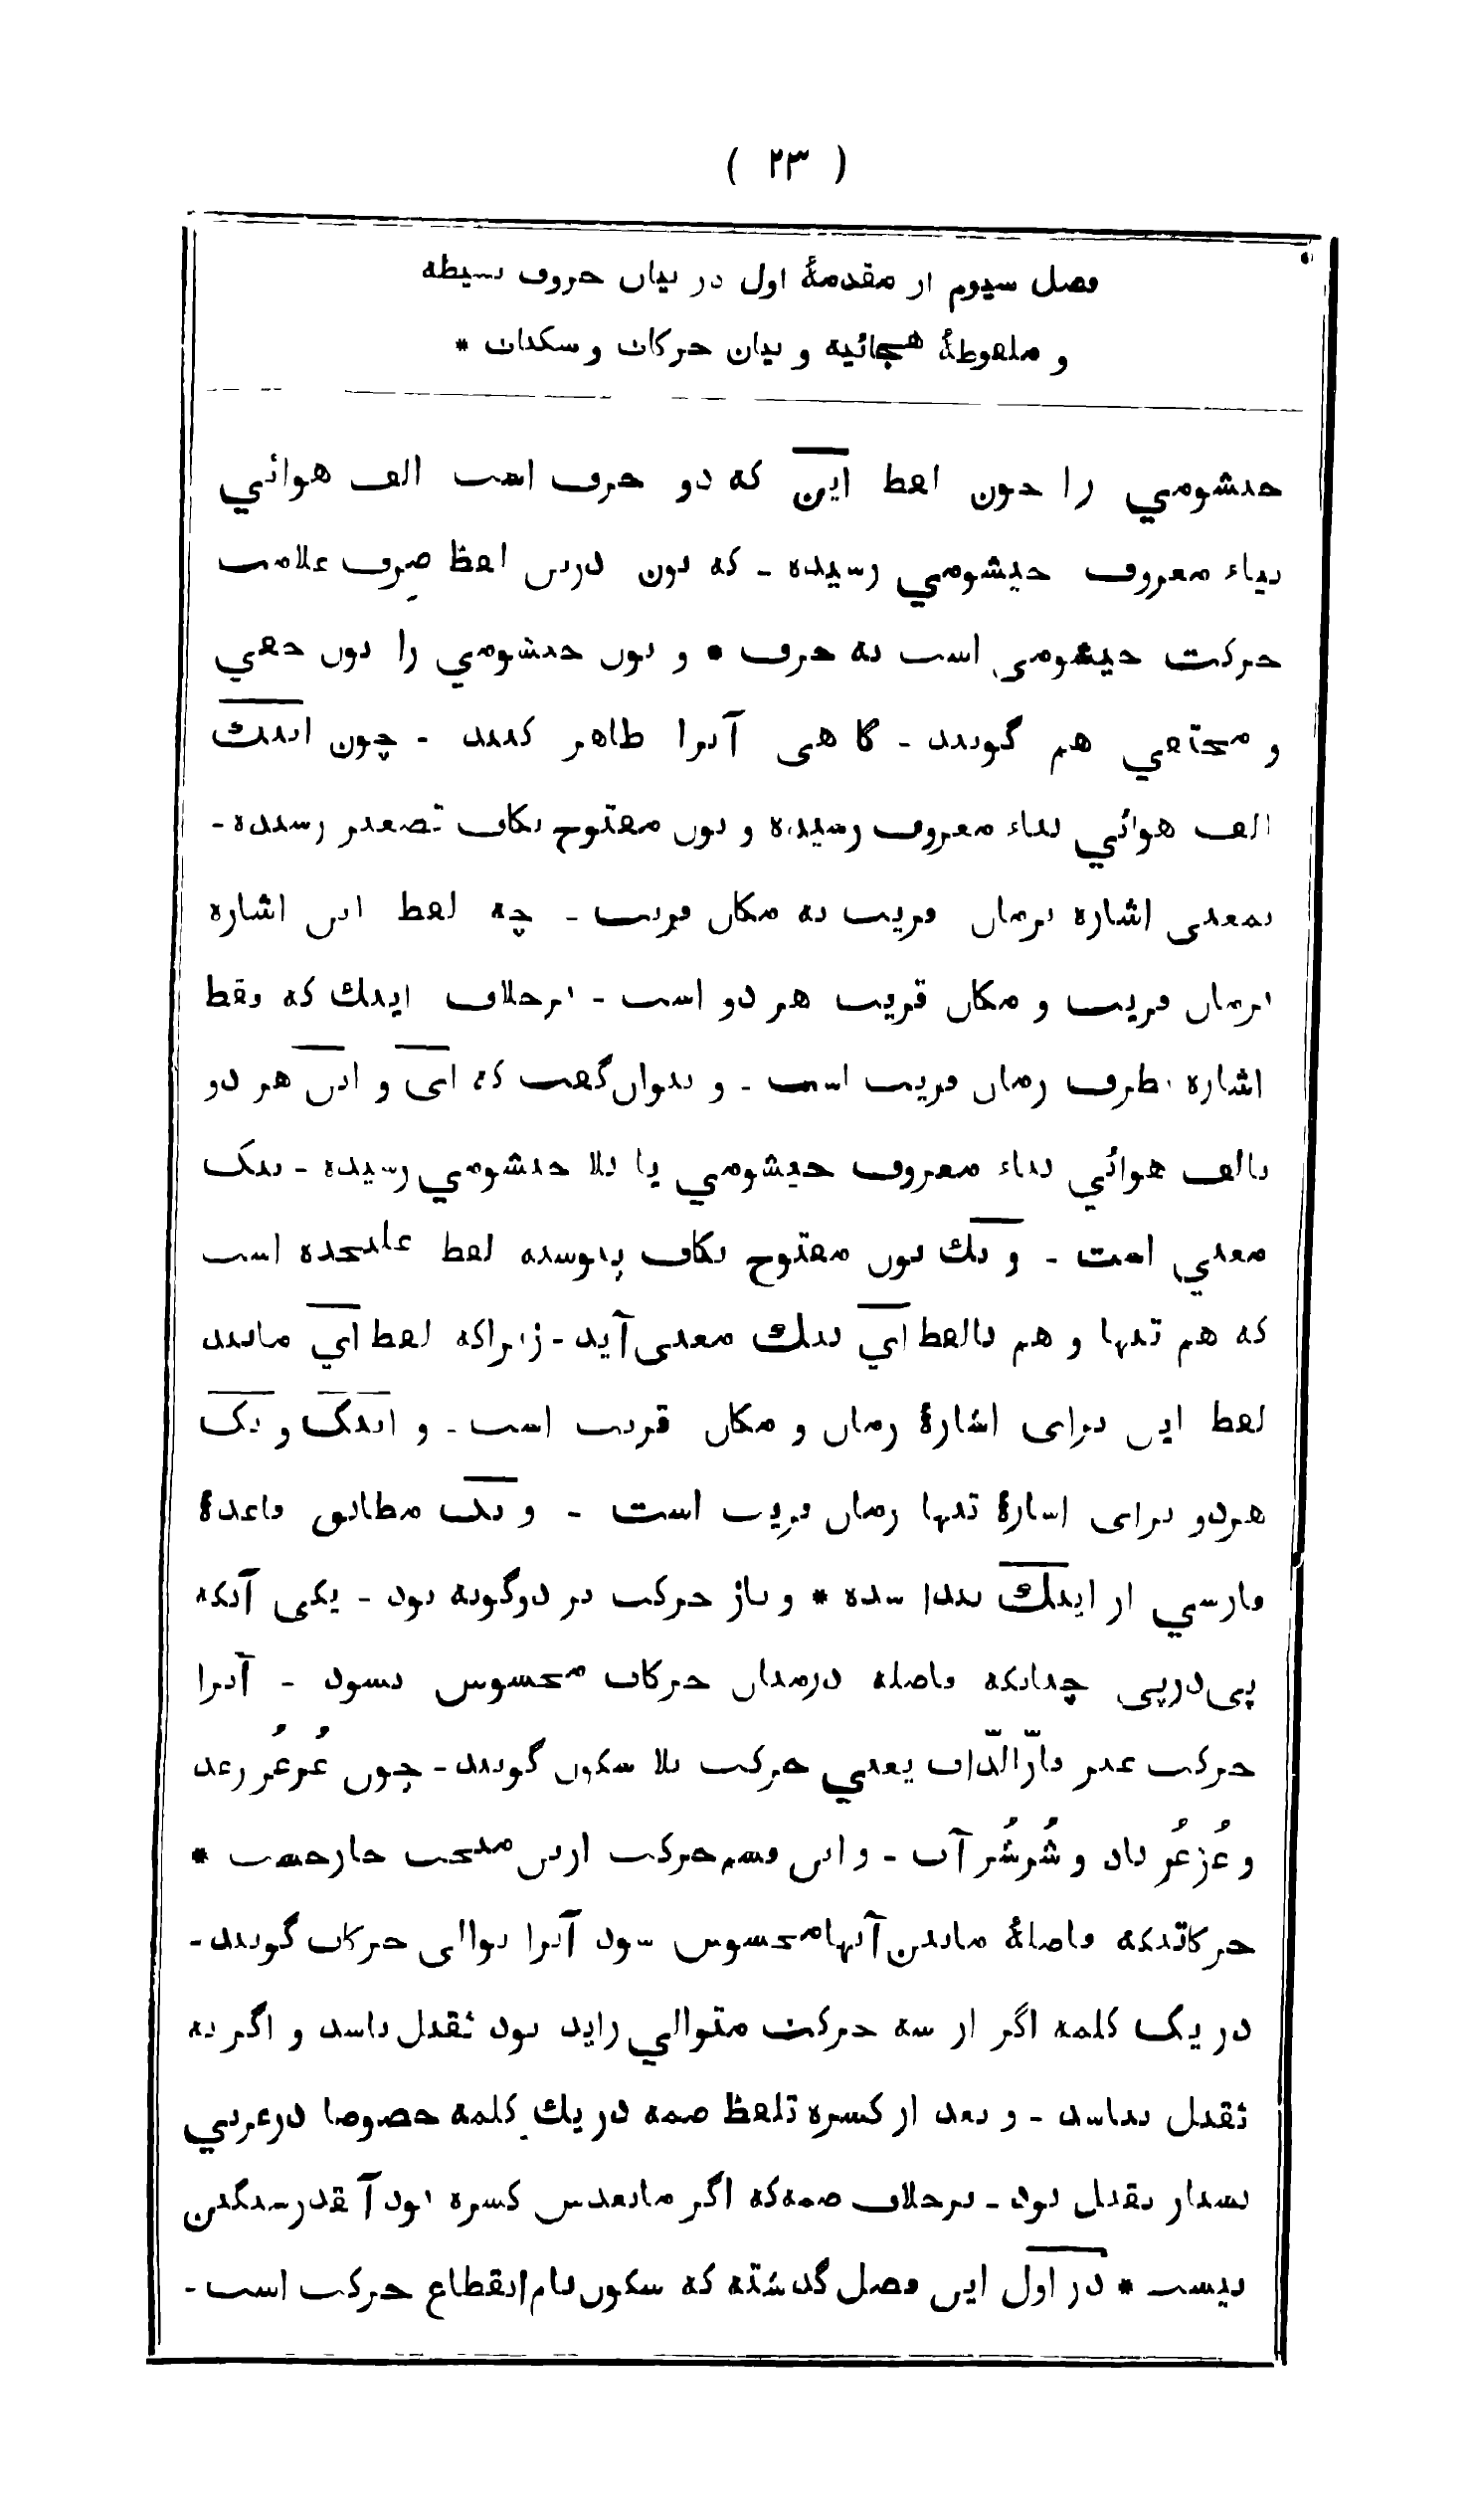 ( ٢٣ )
فصل سيوم از مقدمۀ اول در بيان حروف بسيطه
و ملفوظۀ هجائيه و بيان حركات و سكنات *
خيشومي را چون لفظ اين كه دو حرف است الف هوائي
بياء معروف خيشومي رسيده - كه نون درين لفظ صِرف علامت
حركت خيشومي است نه حرف * و نون خيشومي را نون خفي
و مختفي هم گويند - گاهی آنرا ظاهر كنند - چون اينك
الف هوائي بياء معروف رسيده و نون مفتوح بكاف تصغير رسيده -
بمعنی اشاره بزمان قريب نه مكان قريب - چه لفظ اين اشاره
بزمان قريب و مكان قريب هر دو است - برخلاف اينك كه فقط
اشاره بطرف زمان قريب است - و بتوان گفت كه ای و اين هر دو
بالف هوائي بياء معروف خيشومي يا بلا خيشومي رسيده - بيک
معني است - و نك نون مفتوح بكاف پيوسته لفظ عليحده است
كه هم تنها و هم بالفظ اي بيك معنی آيد - زيراكه لفظ اي مانند
لفظ اين برای اشارۀ زمان و مكان قريب است - و اينک و نک
هردو برای اشارۀ تنها زمان قريب است - و نک مطابق قاعدۀ
فارسي از اينك پيدا شده * و باز حركت بر دوگونه بود - يكی آنكه
پی‌درپی چنانكه فاصله درميان حركات محسوس نشود - آنرا
حركت غير قارّ الذّات يعني حركت بلا سكون گويند - چون غُرغُر رعد
و غُزغُز باد و شُرشُر آب - و اين قسم حركت ازين مبحث خارجست *
حركاتيكه فاصلۀ مابين آنها محسوس شود آنرا توالی حركات گويند -
در يک كلمه اگر از سه حركت متوالي زايد بود ثقيل باشد و اگر نه
ثقيل نباشد - و بعد از كسره تلفظ ضمه در يك كلمه خصوصا در عربي
بسيار ثقيل بود - برخلاف ضمه كه اگر مابعدش كسره بود آنقدر سنگين
نيست * در اول اين فصل گذشته كه سكون نام انقطاع حركت است -